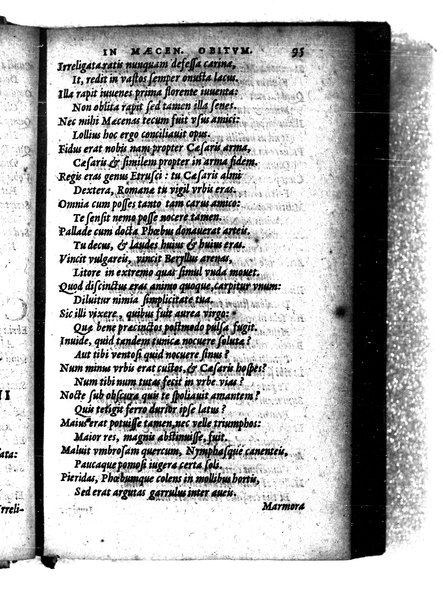 IN MÆCEN. OBITVM. 95
Irreligata ratis nunquam defessa carina,
It, redit in vastos semper onusta lacus.
Illa rapit iuuenes prima florente iuuenta:
Non oblita rapit sed tamen illa senes.
Nec mihi Mæcenas tecum fuit vsus amici:
Lollius hoc ergo conciliauit opus.
Fidus erat nobis nam propter Cæsaris arma,
Cæsaris & similem propter in arma fidem.
Regis eras genus Etrusci: tu Cæsaris almi
Dextera, Romanæ tu vigil vrbis eras.
Omnia cum posses tanto tam carus amico:
Te sensit nemo posse nocere tamen.
Pallade cum docta Phœbus donauerat arteis,
Tu decus, & laudes huius & huius eras.
Vincit vulgareis, vincit Beryllus arenas,
Litore in extremo quas simul vuda mouet.
Quod discinctus eras animo quoque, carpitur vnum:
Diluitur nimia simplicitate tua.
Sic illi vixere, quibus fuit aurea virgo:
Quæ bene præcinctos postmodo pulsa fugit.
Inuide, quid tandem tunicæ nocuere solutæ?
Aut tibi ventosi quid nocuere sinus?
Num minus vrbis erat custos, & Cæsaris hospes?
Num tibi num tutas fecit in vrbe vias?
Nocte sub obscura quis te spoliauit amantem?
Quis tetigit ferro durior ipse latus?
Maius erat potuisse tamen, nec velle triumphos:
Maior res, magnis abstinuisse, fuit.
Maluit vmbrosam quercum, Nymphasque canenteis,
Paucaque pomosi iugera certa soli.
Pieridas, Phœbumque colens in mollibus hortis,
Sed erat argutas garrulus inter aueis.
Marmora
II
ata:
rreli-